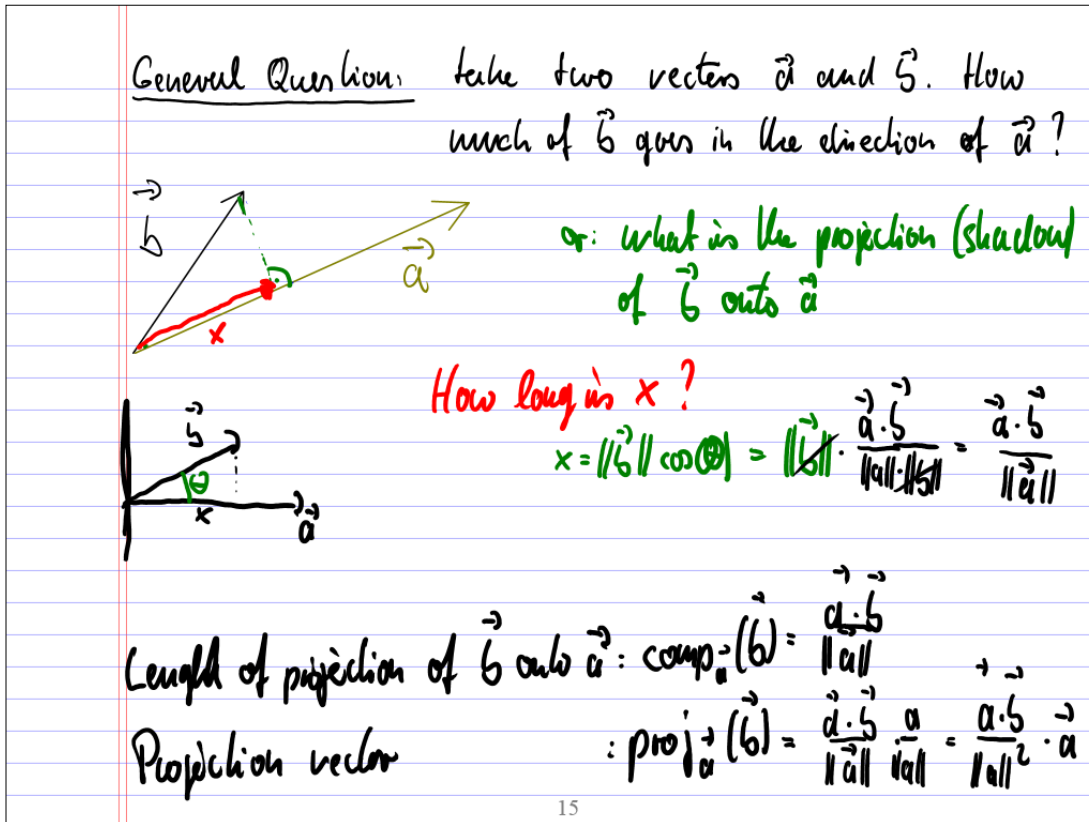 General Question: take two vectors $\vec{a}$ and $\vec{b}$. How
much of $\vec{b}$ goes in the direction of $\vec{a}$?
$\vec{b}$
$\vec{a}$
x
or: what is the projection (shadow)
of $\vec{b}$ onto $\vec{a}$
How long is x?
$x = ||\vec{b}|| \cos(\theta) = ||\vec{b}|| \cdot \frac{\vec{a} \cdot \vec{b}}{||a|| \cdot ||b||} = \frac{\vec{a} \cdot \vec{b}}{||\vec{a}||}$
$\vec{b}$
θ
x
$\vec{a}$
Length of projection of $\vec{b}$ onto $\vec{a}$: $\text{comp}_{\vec{a}}(\vec{b}) = \frac{\vec{a} \cdot \vec{b}}{||\vec{a}||}$
Projection vector : $\text{proj}_{\vec{a}}(\vec{b}) = \frac{\vec{a} \cdot \vec{b}}{||\vec{a}||} \cdot \frac{a}{||a||} = \frac{\vec{a} \cdot \vec{b}}{||a||^2} \cdot \vec{a}$
15